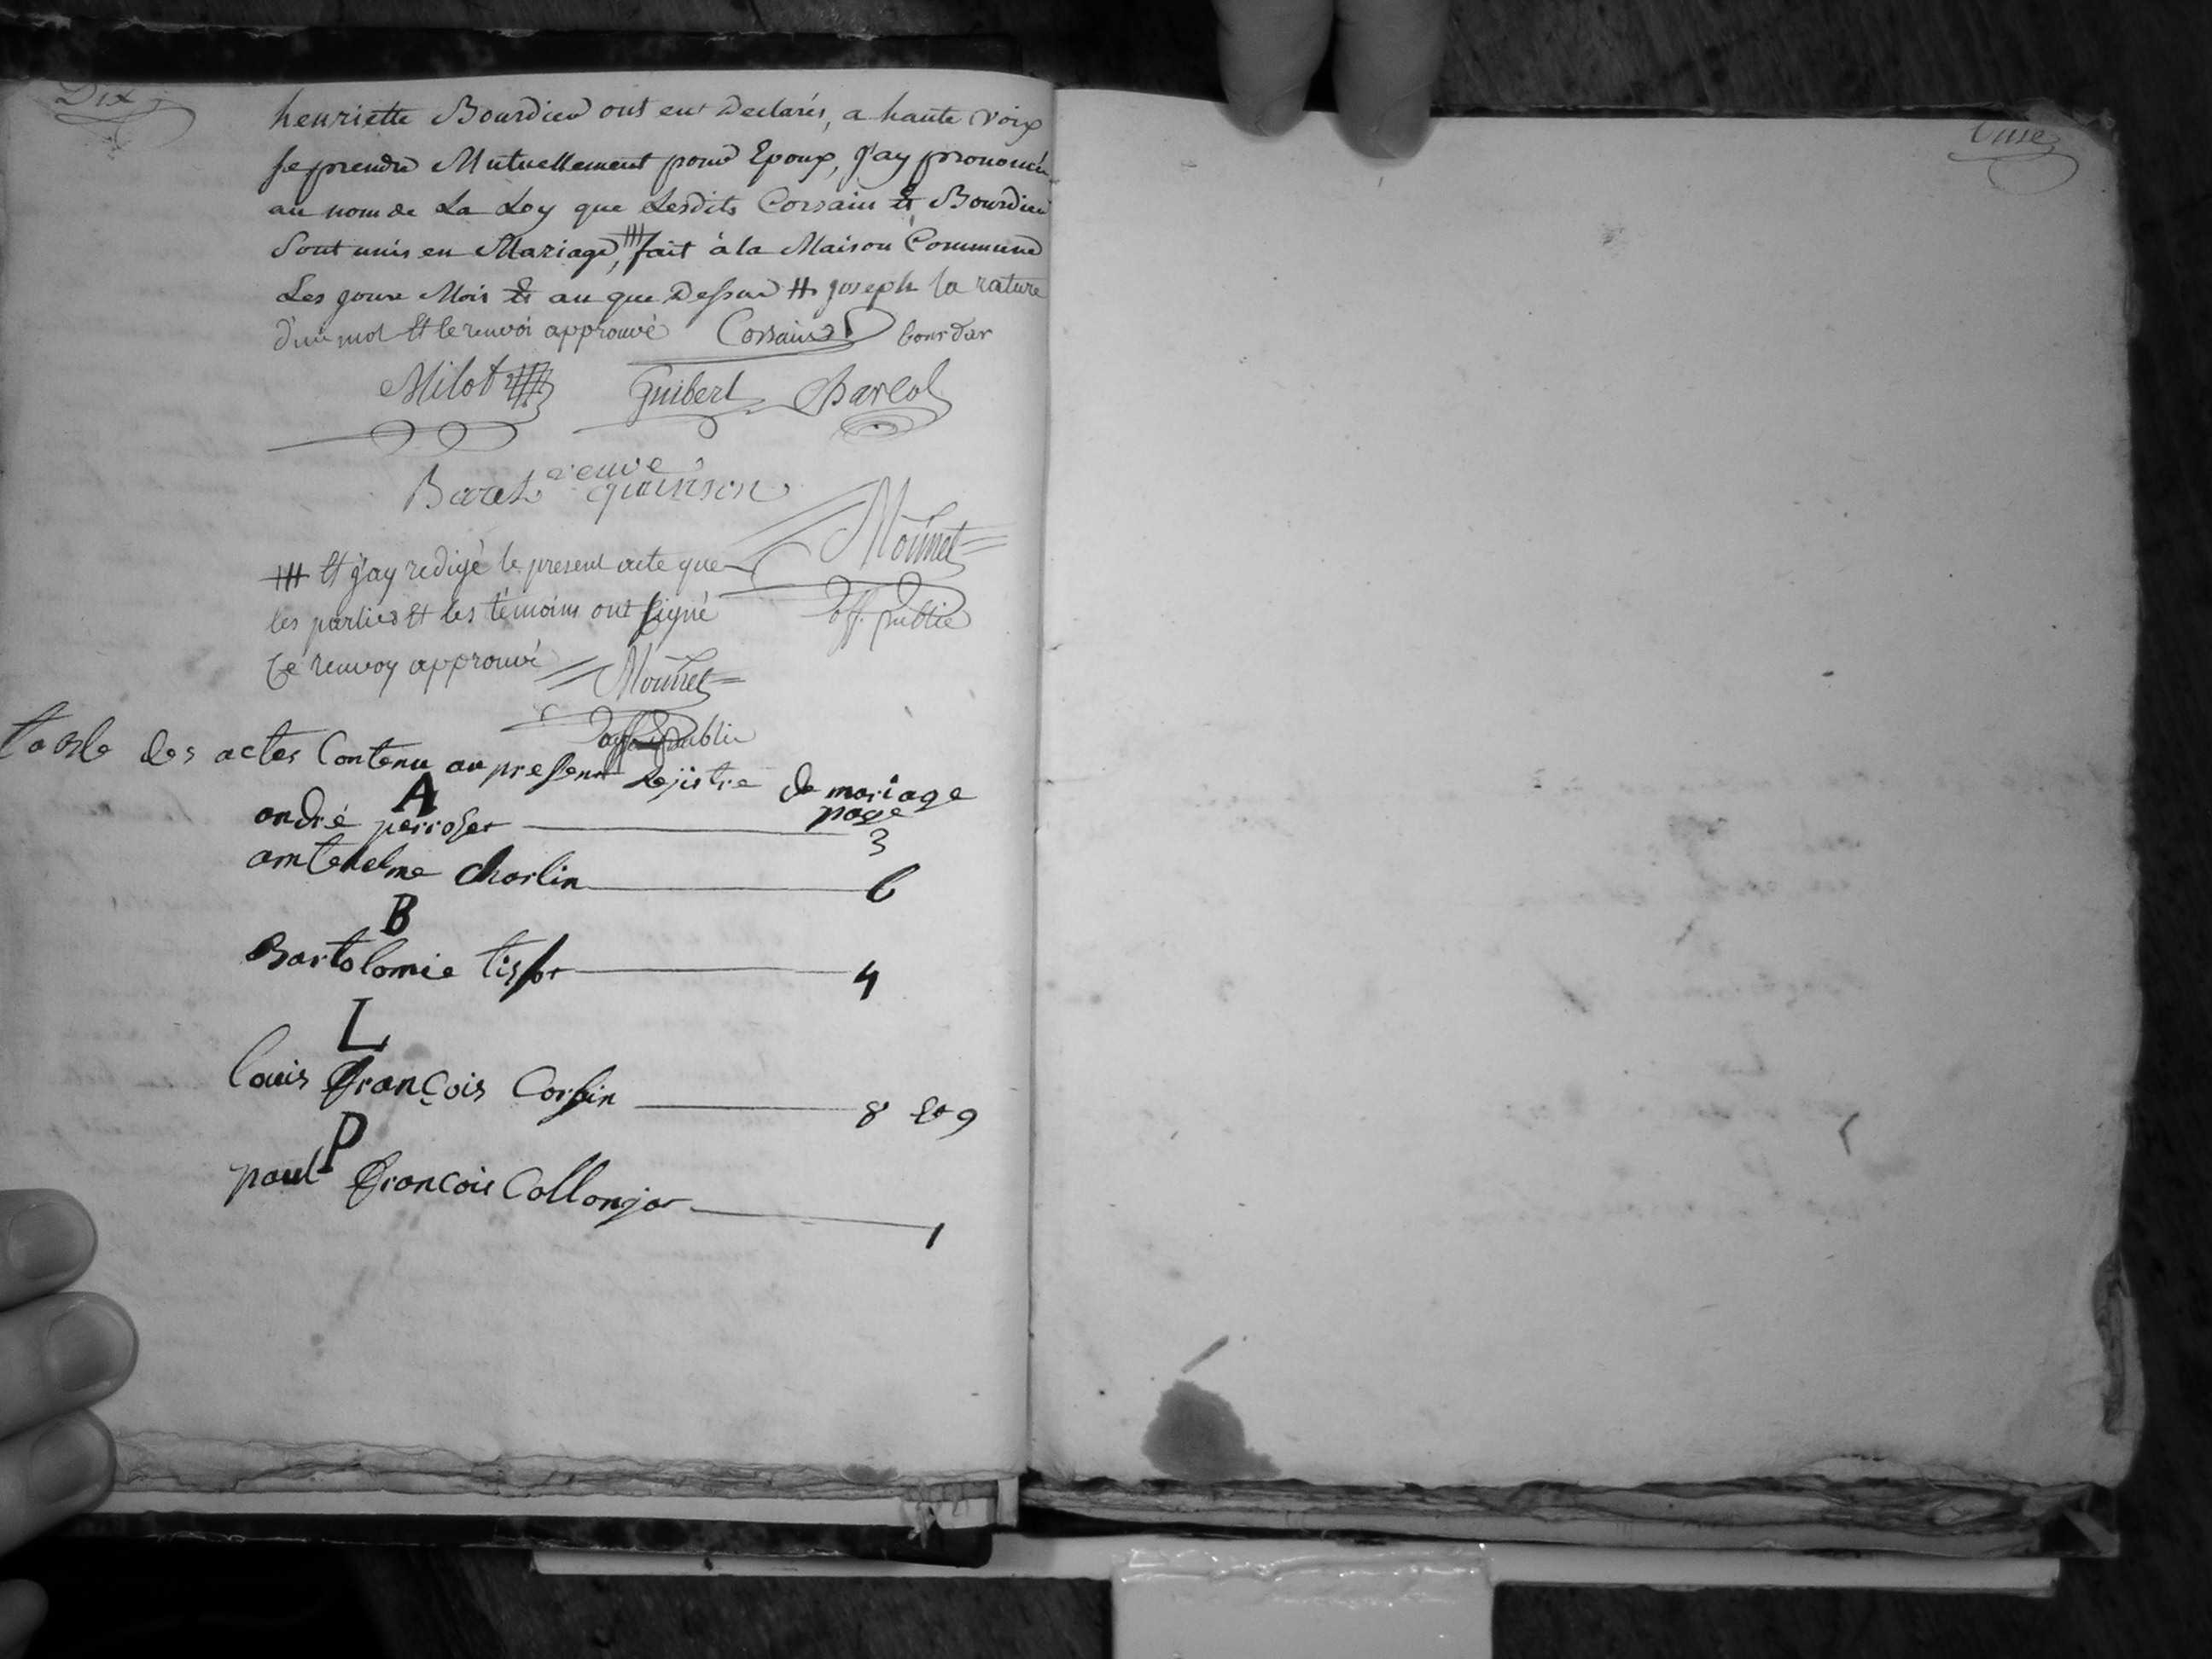 Dix
henriette Bourdieu ont eut Declarés, a haute voix
se prendre Mutuellement pour Epoux, j'ay prononcé
au nom de La Loy que Lesdits Corsain et Bourdieu
Sont unis en Mariage, ## fait à la Maison Commune
Les jour Mois et an que Dessus # joseph la rature
d'un mot et le renvoi approuvé Corsain bourdar
Milot Guibert Charcot
Baret veuve quinson
Mounet
off. public
## et j'ay redigé le present acte que
les parties et les témoins ont signé
Ce renvoy approuvé
Mounet
off. public
table des actes Contenu au present Rejistre de mariage
A
page
andré perroset 3
amtehelme charlin 6
B
Bartolomie tissot 4
L
louis François Corsin 8 et 9
P
paul François Collonjar 1
Onse